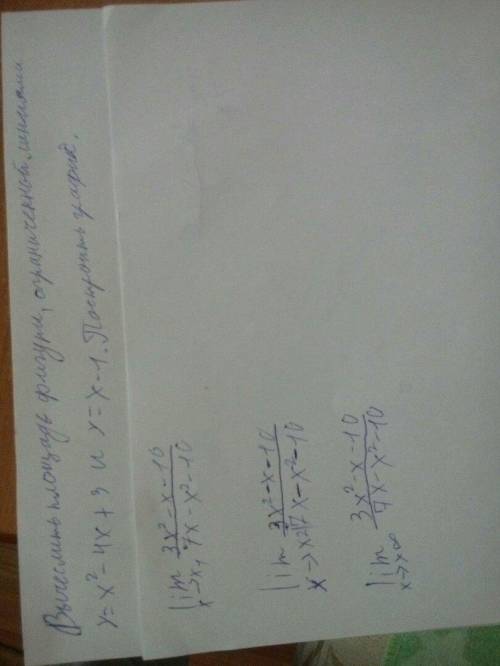 Вычеслить площадь фигуры, ограниченной линиями
y = x² - 4x + 3 и y = x - 1. Построить график.
lim x→x₁ (3x² - x - 10)/(7x - x² - 10)
lim x→x₂ (3x² - x - 10)/(7x - x² - 10)
lim x→x∞ (3x² - x - 10)/(7x - x² - 10)